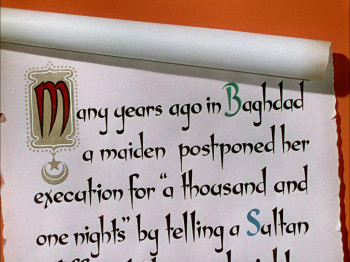 Many years ago in Baghdad
a maiden postponed her
execution for "a thousand and
one nights" by telling a Sultan